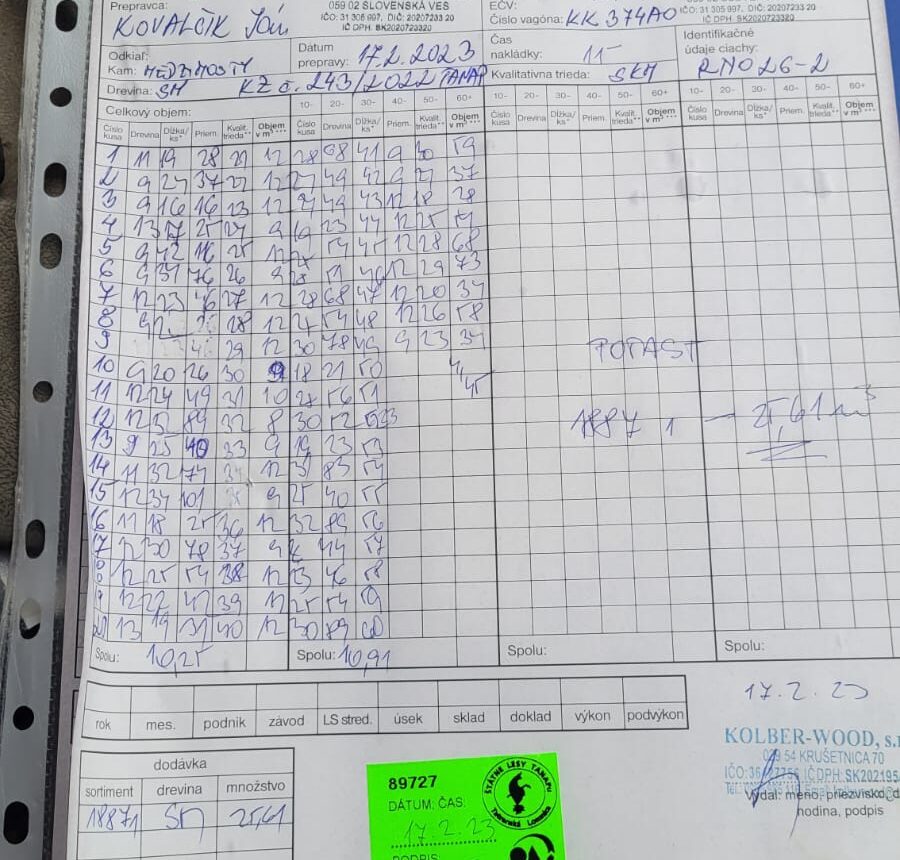 Prepravca:
KOVALČIK Ján
059 02 SLOVENSKÁ VES
IČO: 31 305 997, DIČ: 20207233 20
IČ DPH: SK2020723320
EČV:
Číslo vagóna: KK 374AO
IČO: 31 305 997, DIČ: 20207233 20
IČ DPH SK2020723320
Odkiaľ:
Kam: MEDZIMOSTY
Dátum
prepravy: 17.2.2023
Čas
nakládky: 11-
Identifikačné
údaje ciachy:
Drevina: SM
KZ č. 243/2022 TANAP
Kvalitatívna trieda: SKM
RN026-2
Celkový objem:
10- 20- 30- 40- 50- 60+ 10- 20- 30- 40- 50- 60+ 10- 20- 30- 40- 50- 60+
Číslo kusa Drevina Dĺžka/ks* Priem. Kvalit. trieda** Objem v m³
1 11 19 28 21 12 28 68 41 9 30 59
2 9 27 37 22 12 27 49 42 9 27 37
3 9 16 16 23 12 27 49 43 12 18 28
4 13 17 25 24 9 19 23 44 12 25 54
5 9 42 116 25 12 25 54 45 12 28 68
6 9 31 76 26 9 28 51 46 12 29 73
7 12 23 46 27 12 28 68 47 12 20 34
8 28 12 25 54 48 12 26 58
9 29 12 30 78 49 9 23 34
POPAST
10 9 20 26 30 9 18 21 50
4,45
11 12 24 49 31 10 28 56 51
12 12 32 89 32 8 30 52
1887 1 — 25,61 m³
13 9 25 40 33 9 19 23 53
14 11 32 77 34 12 31 83 54
15 12 34 101 9 25 40 55
16 11 18 25 36 12 32 89 56
17 12 30 78 37 9 44 57
12 25 54 38 12 23 46 58
12 22 41 39 12 25 54 59
20 13 19 31 40 12 30 89 60
Spolu: 10,25
Spolu: 10,91
Spolu:
Spolu:
rok mes. podnik závod LS stred. úsek sklad doklad výkon podvýkon
17.2.23
KOLBER-WOOD, s.r
029 54 KRUŠETNICA 70
dodávka
sortiment drevina množstvo
18871 SM 25,61
Vydal: meno, priezvisko,
hodina, podpis
89727
DÁTUM: ČAS:
17.2.23
PODPIS
ŠTÁTNE LESY TANAPu
Tatranská Lomnica